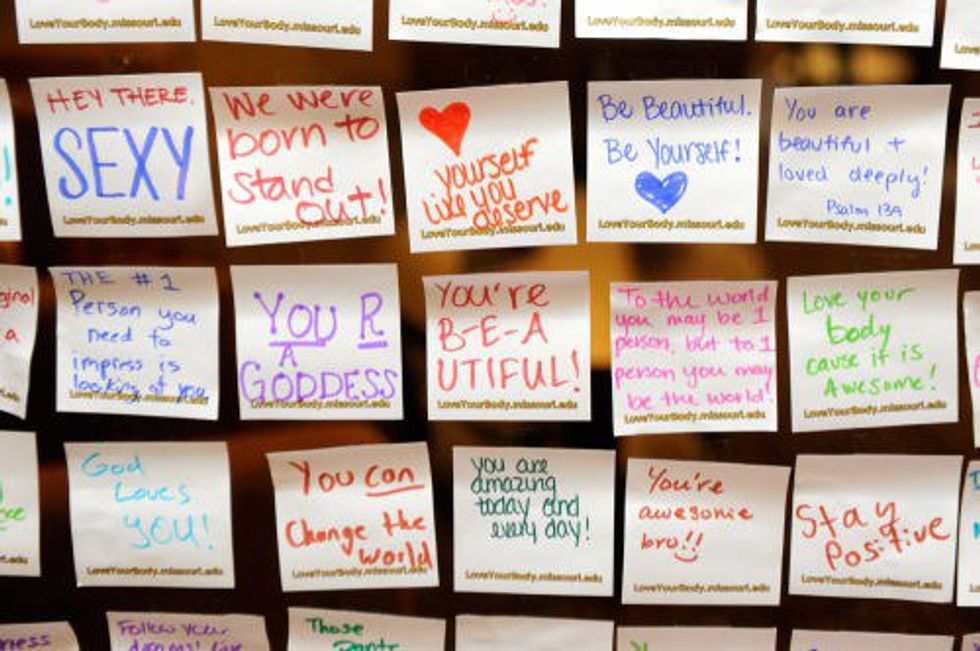 LoveYourBody.missouri.edu
LoveYourBody.missouri.edu
LoveYourBody.missouri.edu
LoveYourBody.missouri.edu
HEY THERE,
SEXY
LoveYourBody.missouri.edu
We were
born to
Stand
out!
LoveYourBody.missouri.edu
yourself
like you
deserve
LoveYourBody.missouri.edu
Be Beautiful.
Be Yourself!
LoveYourBody.missouri.edu
You are
beautiful +
loved deeply!
Psalm 139
LoveYourBody.missouri.edu
a
THE #1
Person you
need to
impress is
looking at you
LoveYourBody.missouri.edu
YOU R
A
GODDESS
LoveYourBody.missouri.edu
YOU'RE
B-E-A
UTIFUL!
LoveYourBody.missouri.edu
To the world
you may be 1
person, but to 1
person you may
be the world!
LoveYourBody.missouri.edu
Love your
body
cause it is
Awesome!
LoveYourBody.missouri.edu
God
Loves
YOU!
LoveYourBody.missouri.edu
You can
Change the
world
LoveYourBody.missouri.edu
you are
amazing
today and
every day!
LoveYourBody.missouri.edu
You're
awesome
bro!!
LoveYourBody.missouri.edu
Stay
Positive
LoveYourBody.missouri.edu
Follow your
Those